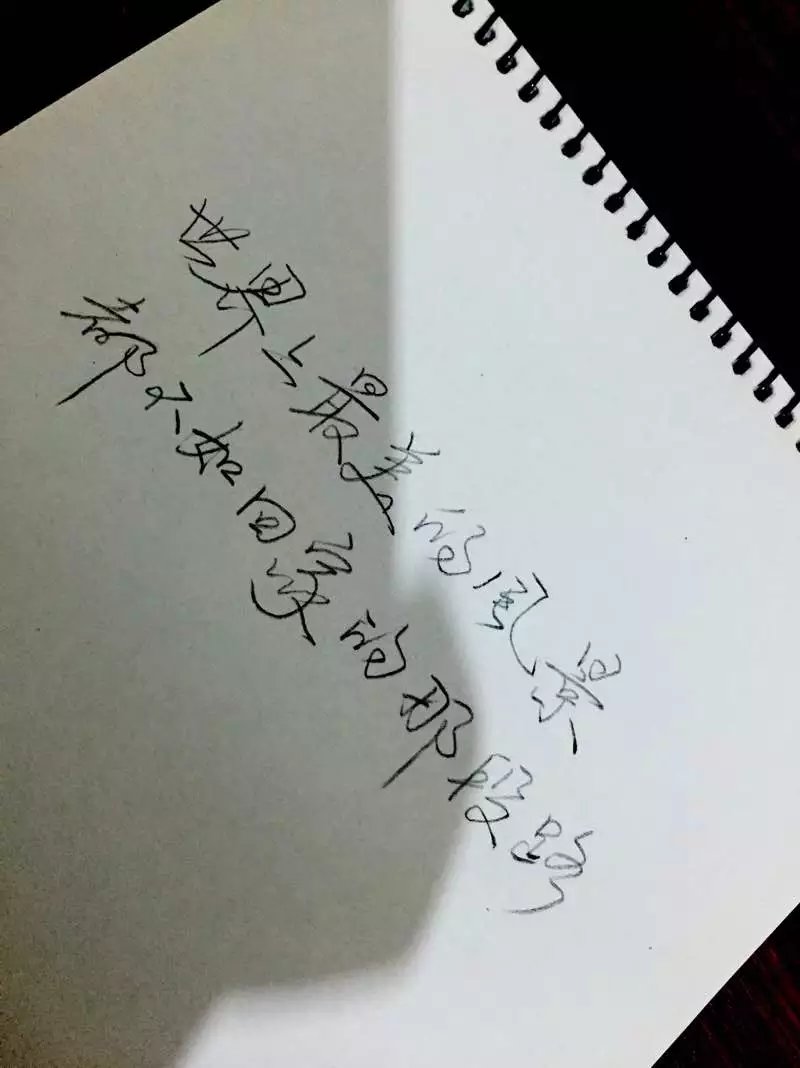 世界上最美的风景
都不如回家的那段路